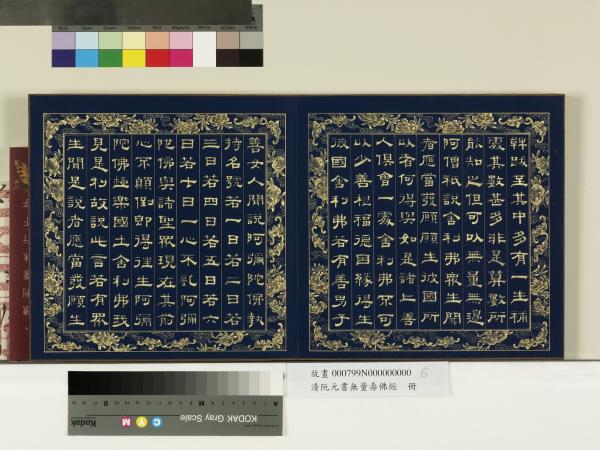 Blue Cyan Green Yellow Red Magenta White 3/Color Black
鞞跋至其中多有一生補
處其數甚多非是算數所
能知之但可以無量無邊
阿僧祇說舍利弗眾生聞
者應當發願願生彼國所
以者何得與如是諸上善
人俱會一處舍利弗不可
以少善根福德因緣得生
彼國舍利弗若有善男子
善女人聞說阿彌陀佛執
持名號若一日若二日若
三日若四日若五日若六
日若七日一心不亂阿彌
陀佛與諸聖眾現在其前
心不顛倒即得往生阿彌
陀佛極樂國土舍利弗我
見是利故說此言若有眾
生聞是說者應當發願生
故畫 000799N000000000 6
清阮元書無量壽佛經 冊
KODAK Gray Scale
C Y M
Kodak